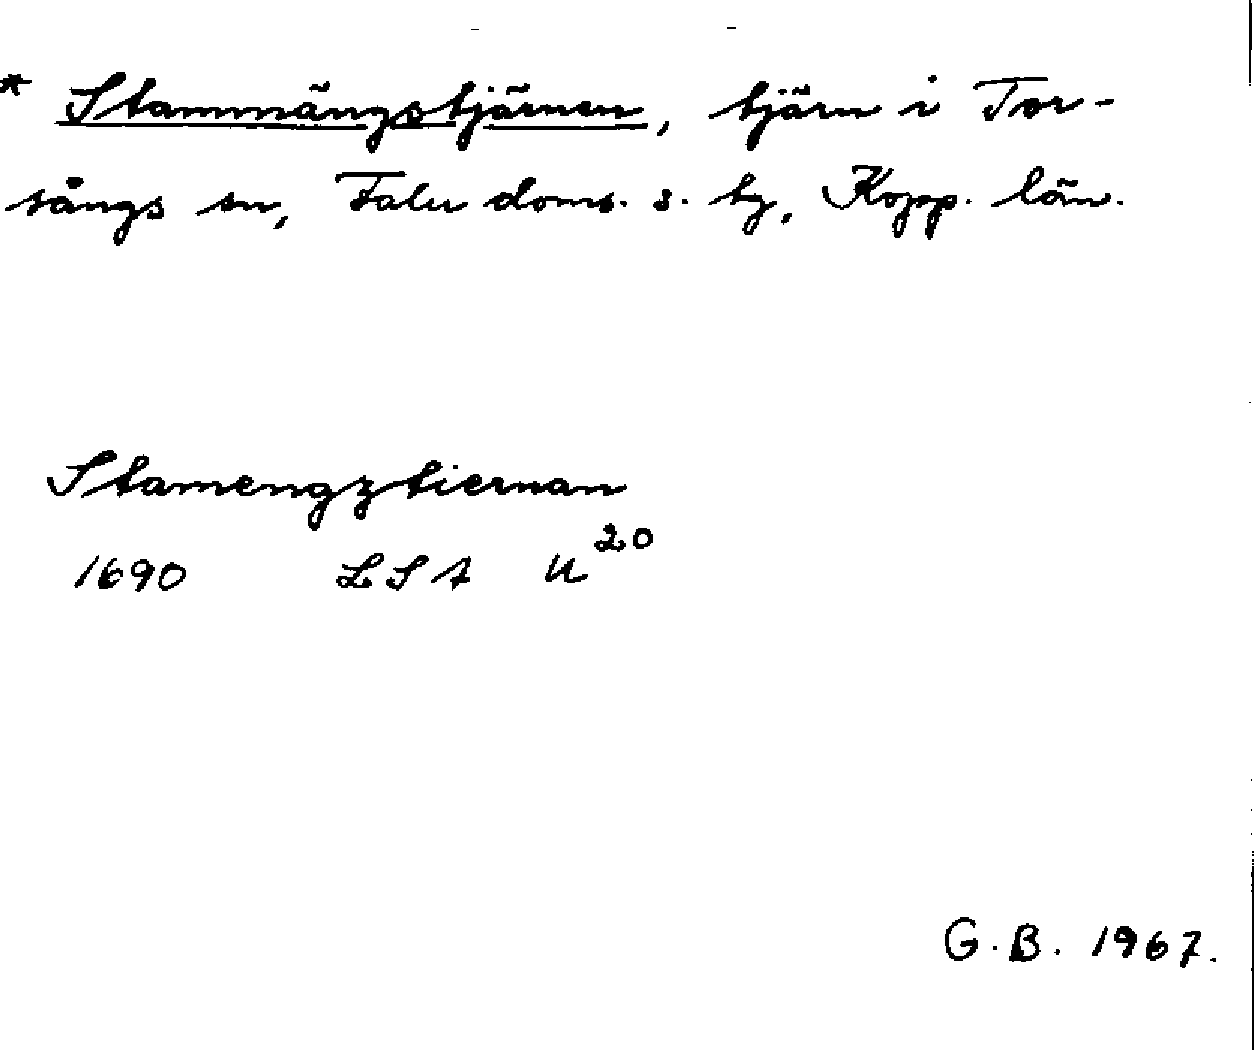 * Stammängstjärnen, tjärn i Tor-
sångs sn, Falu doms. s. tg, Kopp. län.
Stamengztiernan
1690 LSA U20
G.B. 1967.